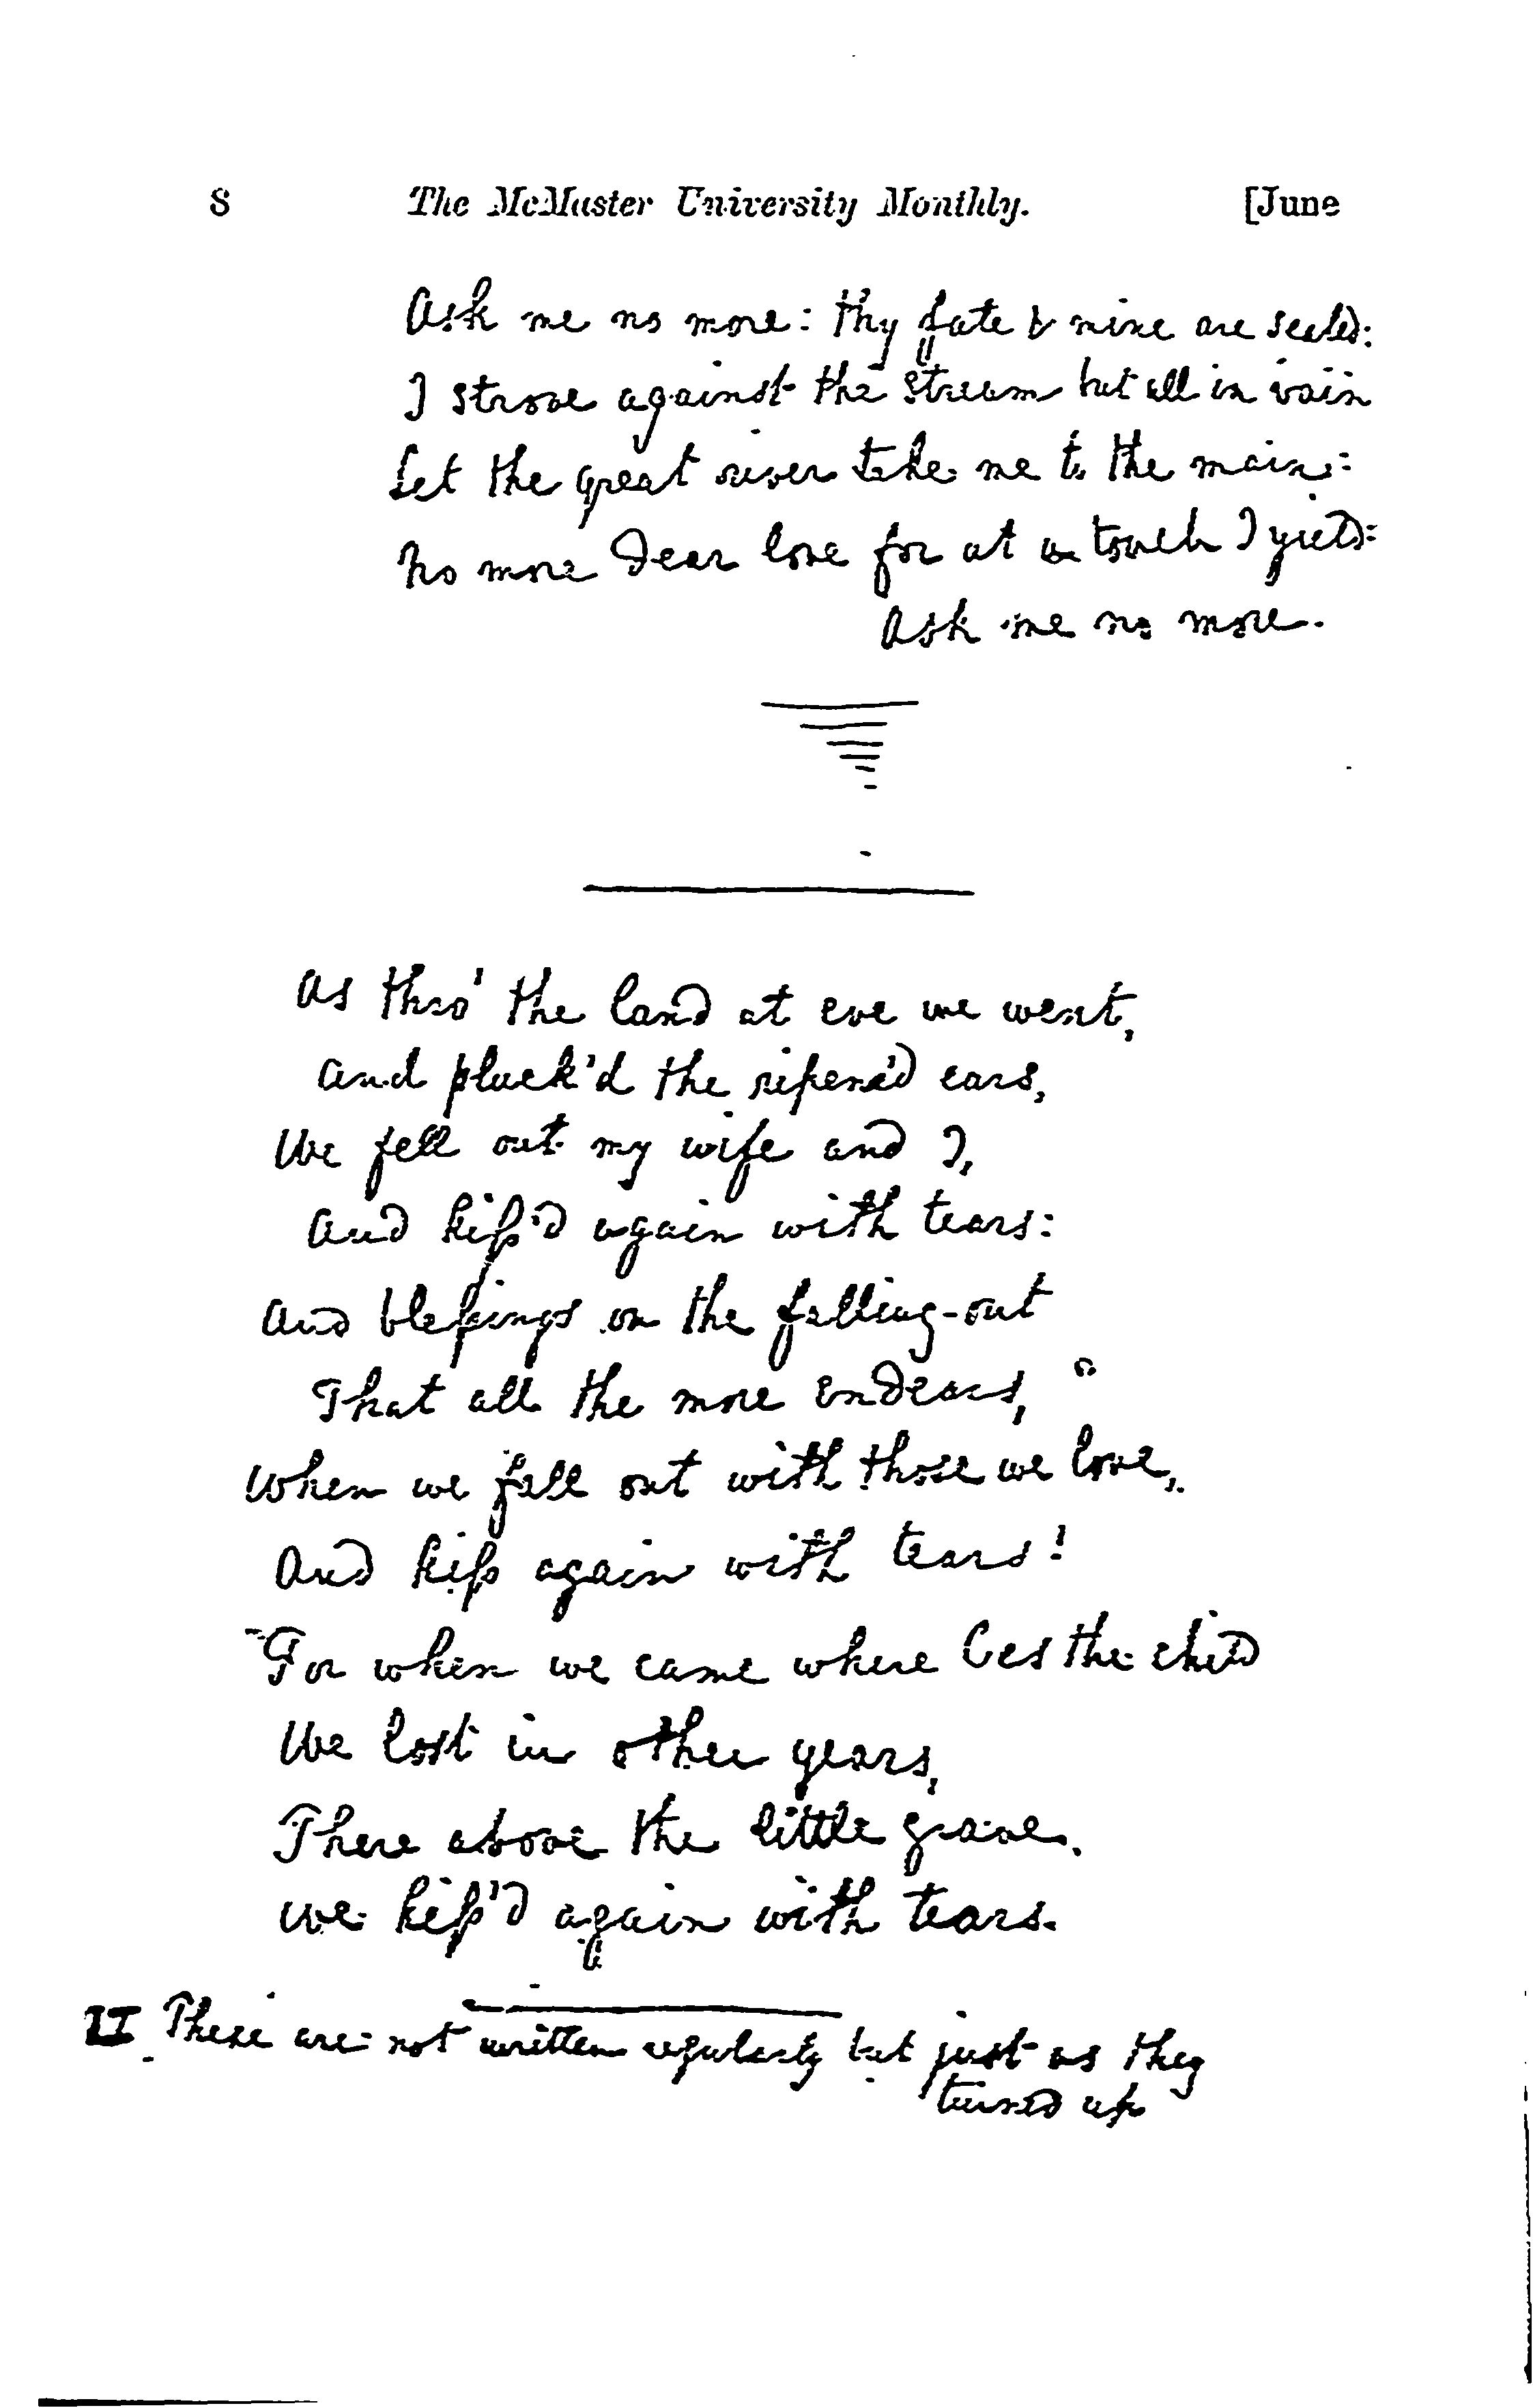 8 The McMaster University Monthly. [June
Ask me no more: thy fate & mine are sealed:
I strove against the stream but all in vain
Let the great river take me to the main:
No more dear love for at a touch I yield:
Ask me no more.
As thro' the land at eve we went,
And pluck'd the ripen'd ears,
We fell out my wife and I,
And kiss'd again with tears:
And blessings on the falling-out
That all the more endears,
When we fall out with those we love,
And kiss again with tears!
For when we came where lies the child
We lost in other years,
There above the little grave
We kiss'd again with tears.
II These are not written regularly but just as they
turned up